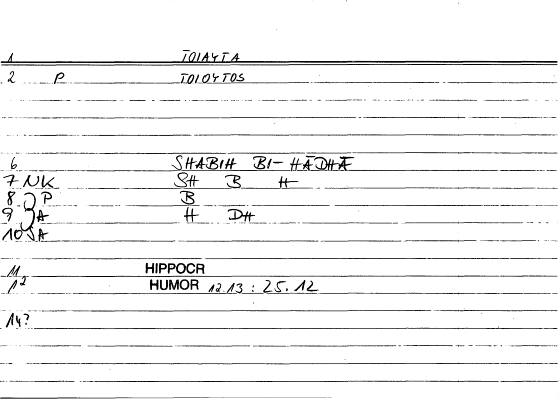 1 TOIAYTA
2 P TOIOYTOS
6 SHABIH BI-HĀDHĀ
7 NK SH B H
8 P B
9 A H DH
10 A
11 HIPPOCR
12 HUMOR 12.13 : 25.12
14?